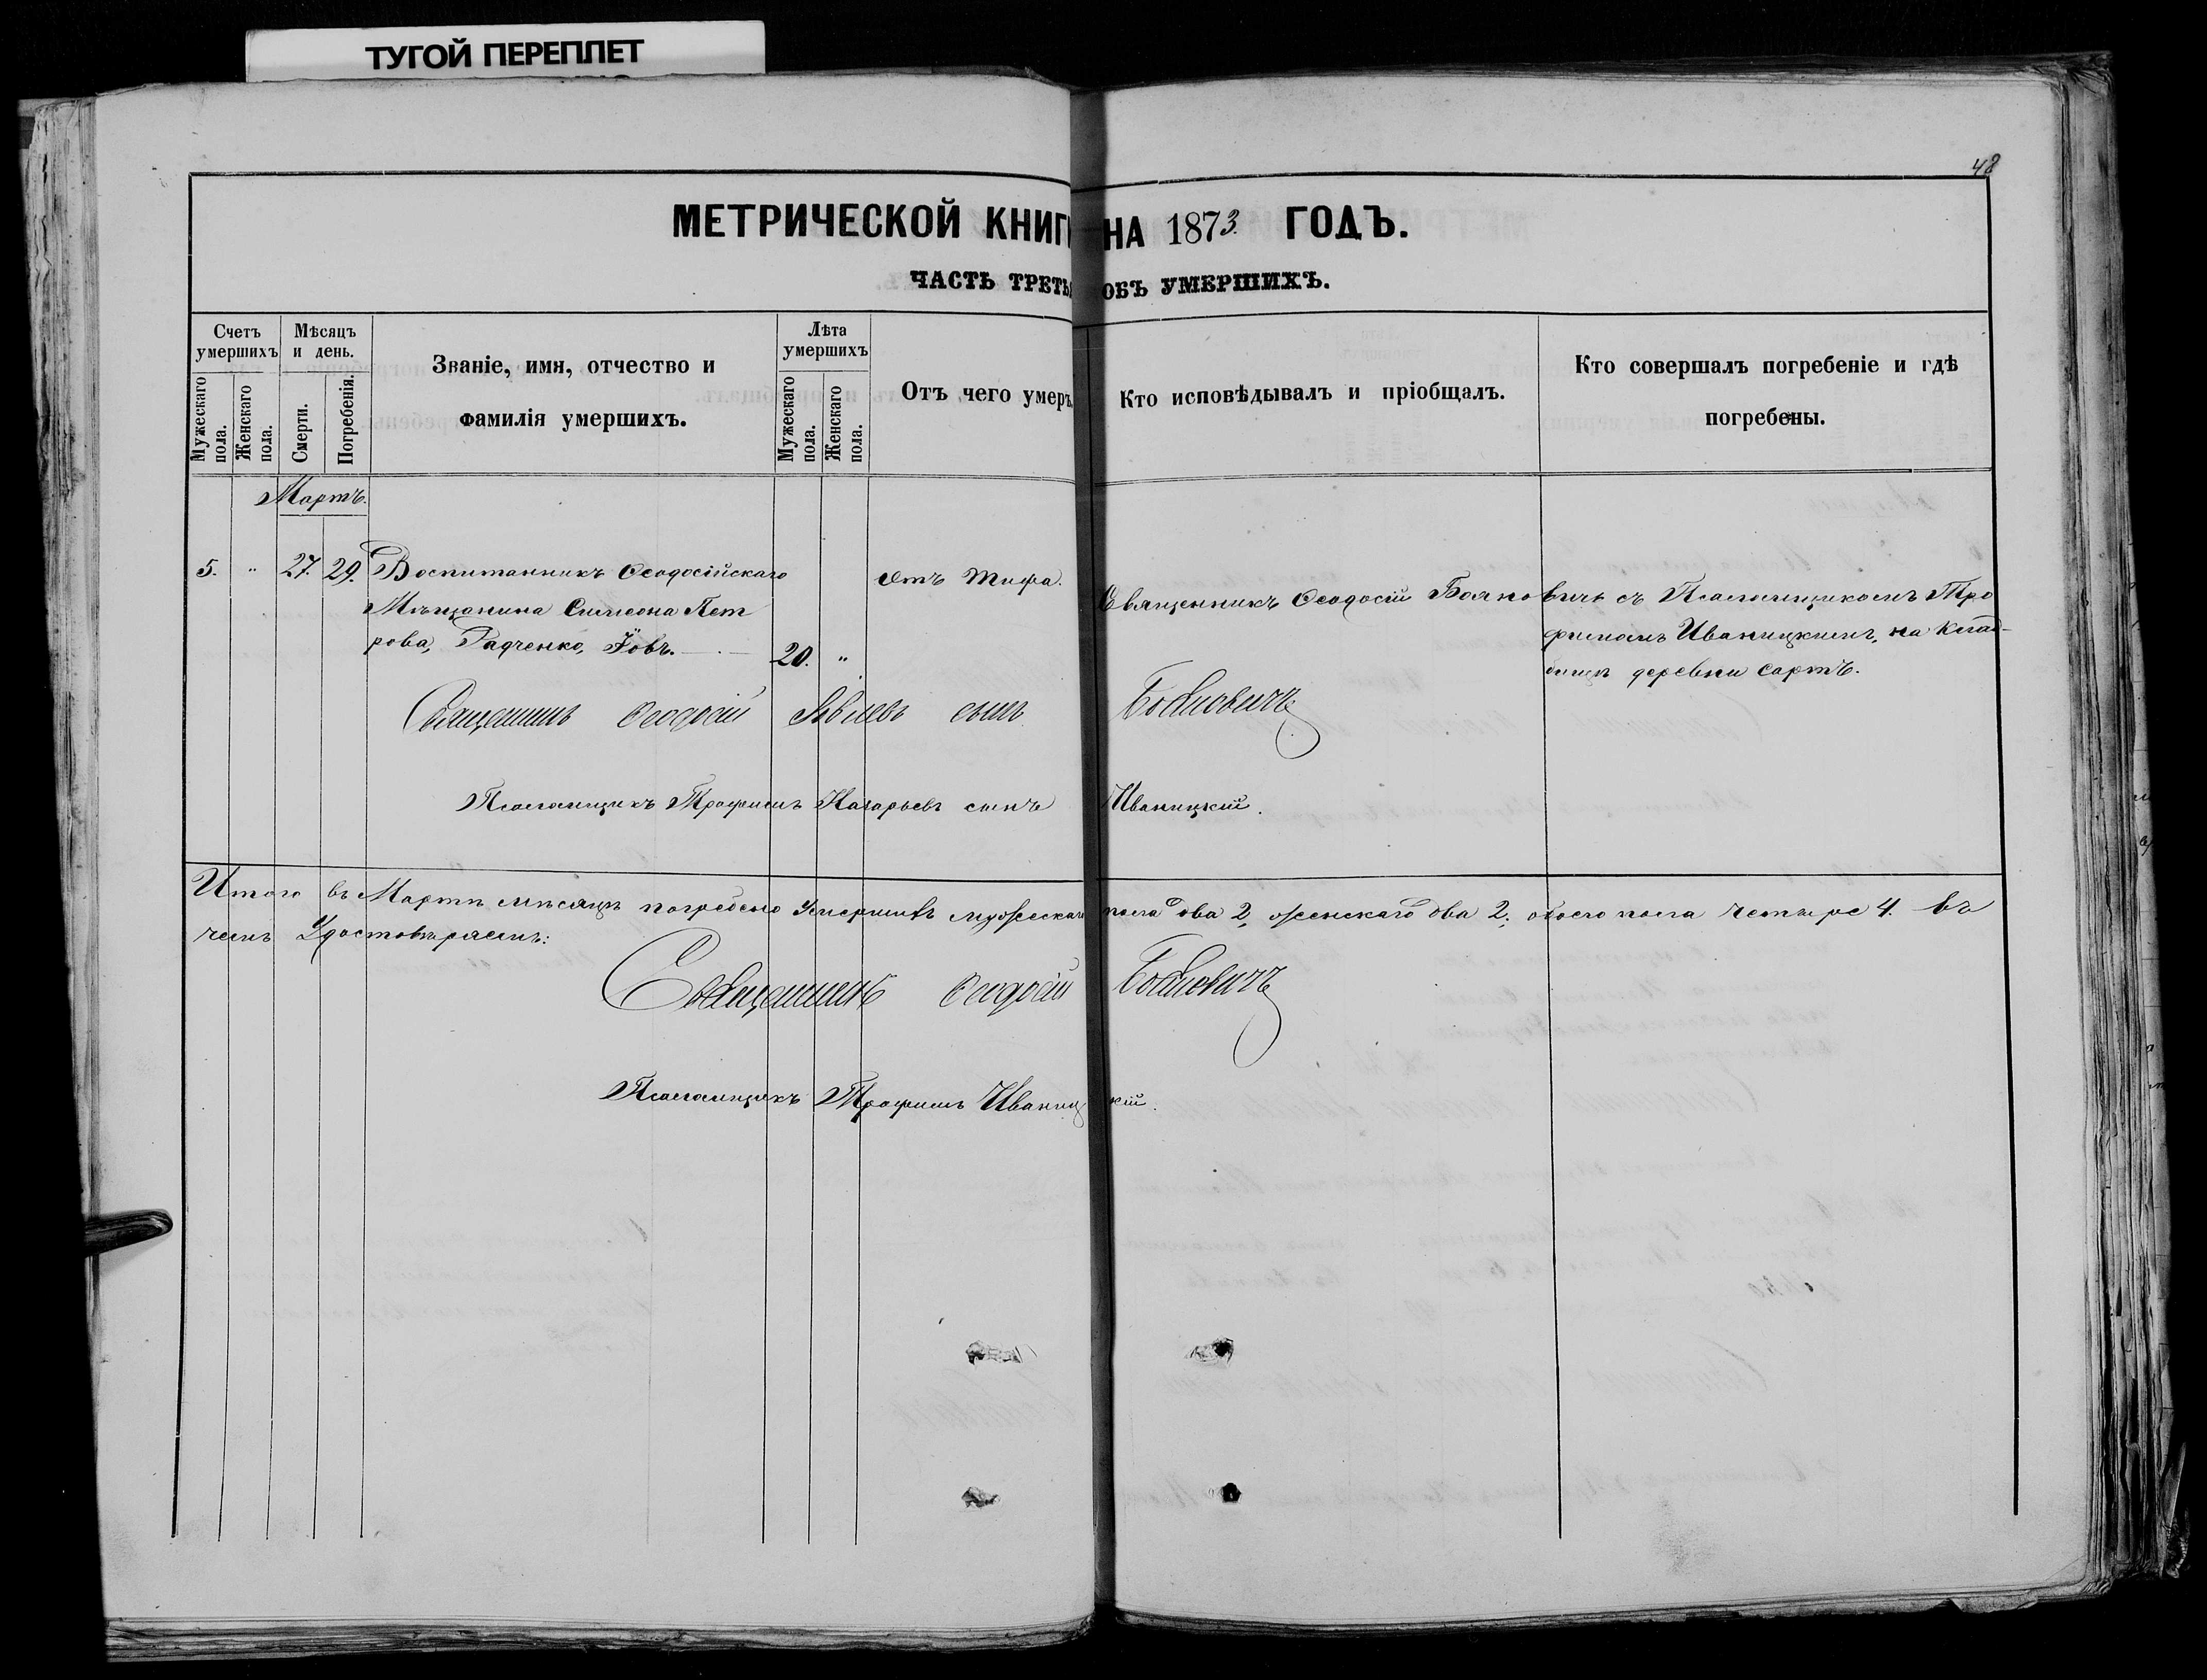 ТУГОЙ ПЕРЕПЛЕТ
48
МЕТРИЧЕСКОЙ КНИГ НА 1873. ГОДЪ.
ЧАСТЬ ТРЕТЬ ОБЪ УМЕРШИХЪ.
Счетъ умершихъ
Мѣсяцъ и день.
Званіе, имя, отчество и фамилія умершихъ.
Лѣта умершихъ
Отъ чего умеръ
Кто исповѣдывалъ и пріобщалъ.
Кто совершалъ погребеніе и гдѣ погребены.
Мужескаго пола.
Женскаго пола.
Смерти.
Погребенія.
Мужескаго пола.
Женскаго пола.
Мартъ.
5. " 27. 29. Воспитанникъ Ѳеодосійскаго
Мѣщанина Симеона Пет
рова, Радченко, Іовъ. 20. "
Отъ тифа.
Священникъ Ѳеодосій Бояновичъ съ Псаломщикомъ Тро
фимомъ Иваницкимъ, на клад-
бищѣ деревни Сартъ.
Священникъ Ѳеодосій сынъ Бояновичъ
Псаломщикъ Трофимъ Назарьевъ сынъ Иваницкій.
Итого въ Мартѣ мѣсяцѣ погребено умершихъ мужескаго пола два 2, женскаго два 2; обоего пола четыре 4. Въ
чемъ Удостовѣряемъ:
Священникъ Ѳеодосій Бояновичъ
Псаломщикъ Трофимъ Иваницкій.